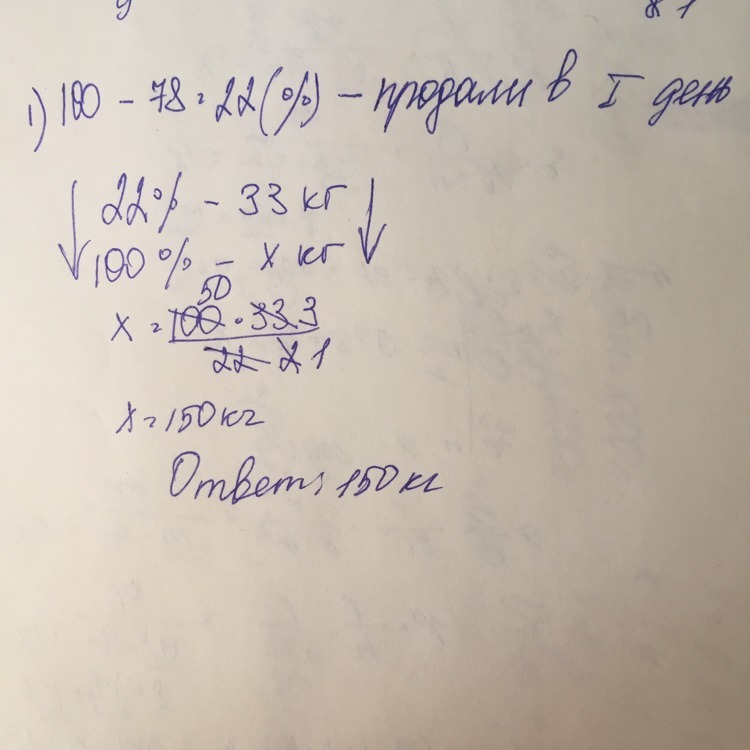 9 81
1) 100 - 78 = 22 (%) - продали в I день
22% - 33 кг
100% - x кг
50
x = 100 · 33 3
22 2 1
x = 150 кг
Ответ: 150 кг